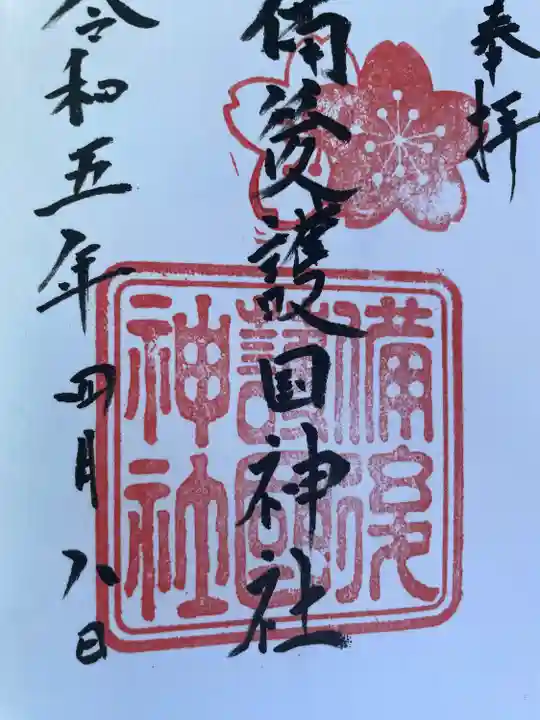 奉拝
備後護国神社
令和五年四月八日
備後
護國
神社